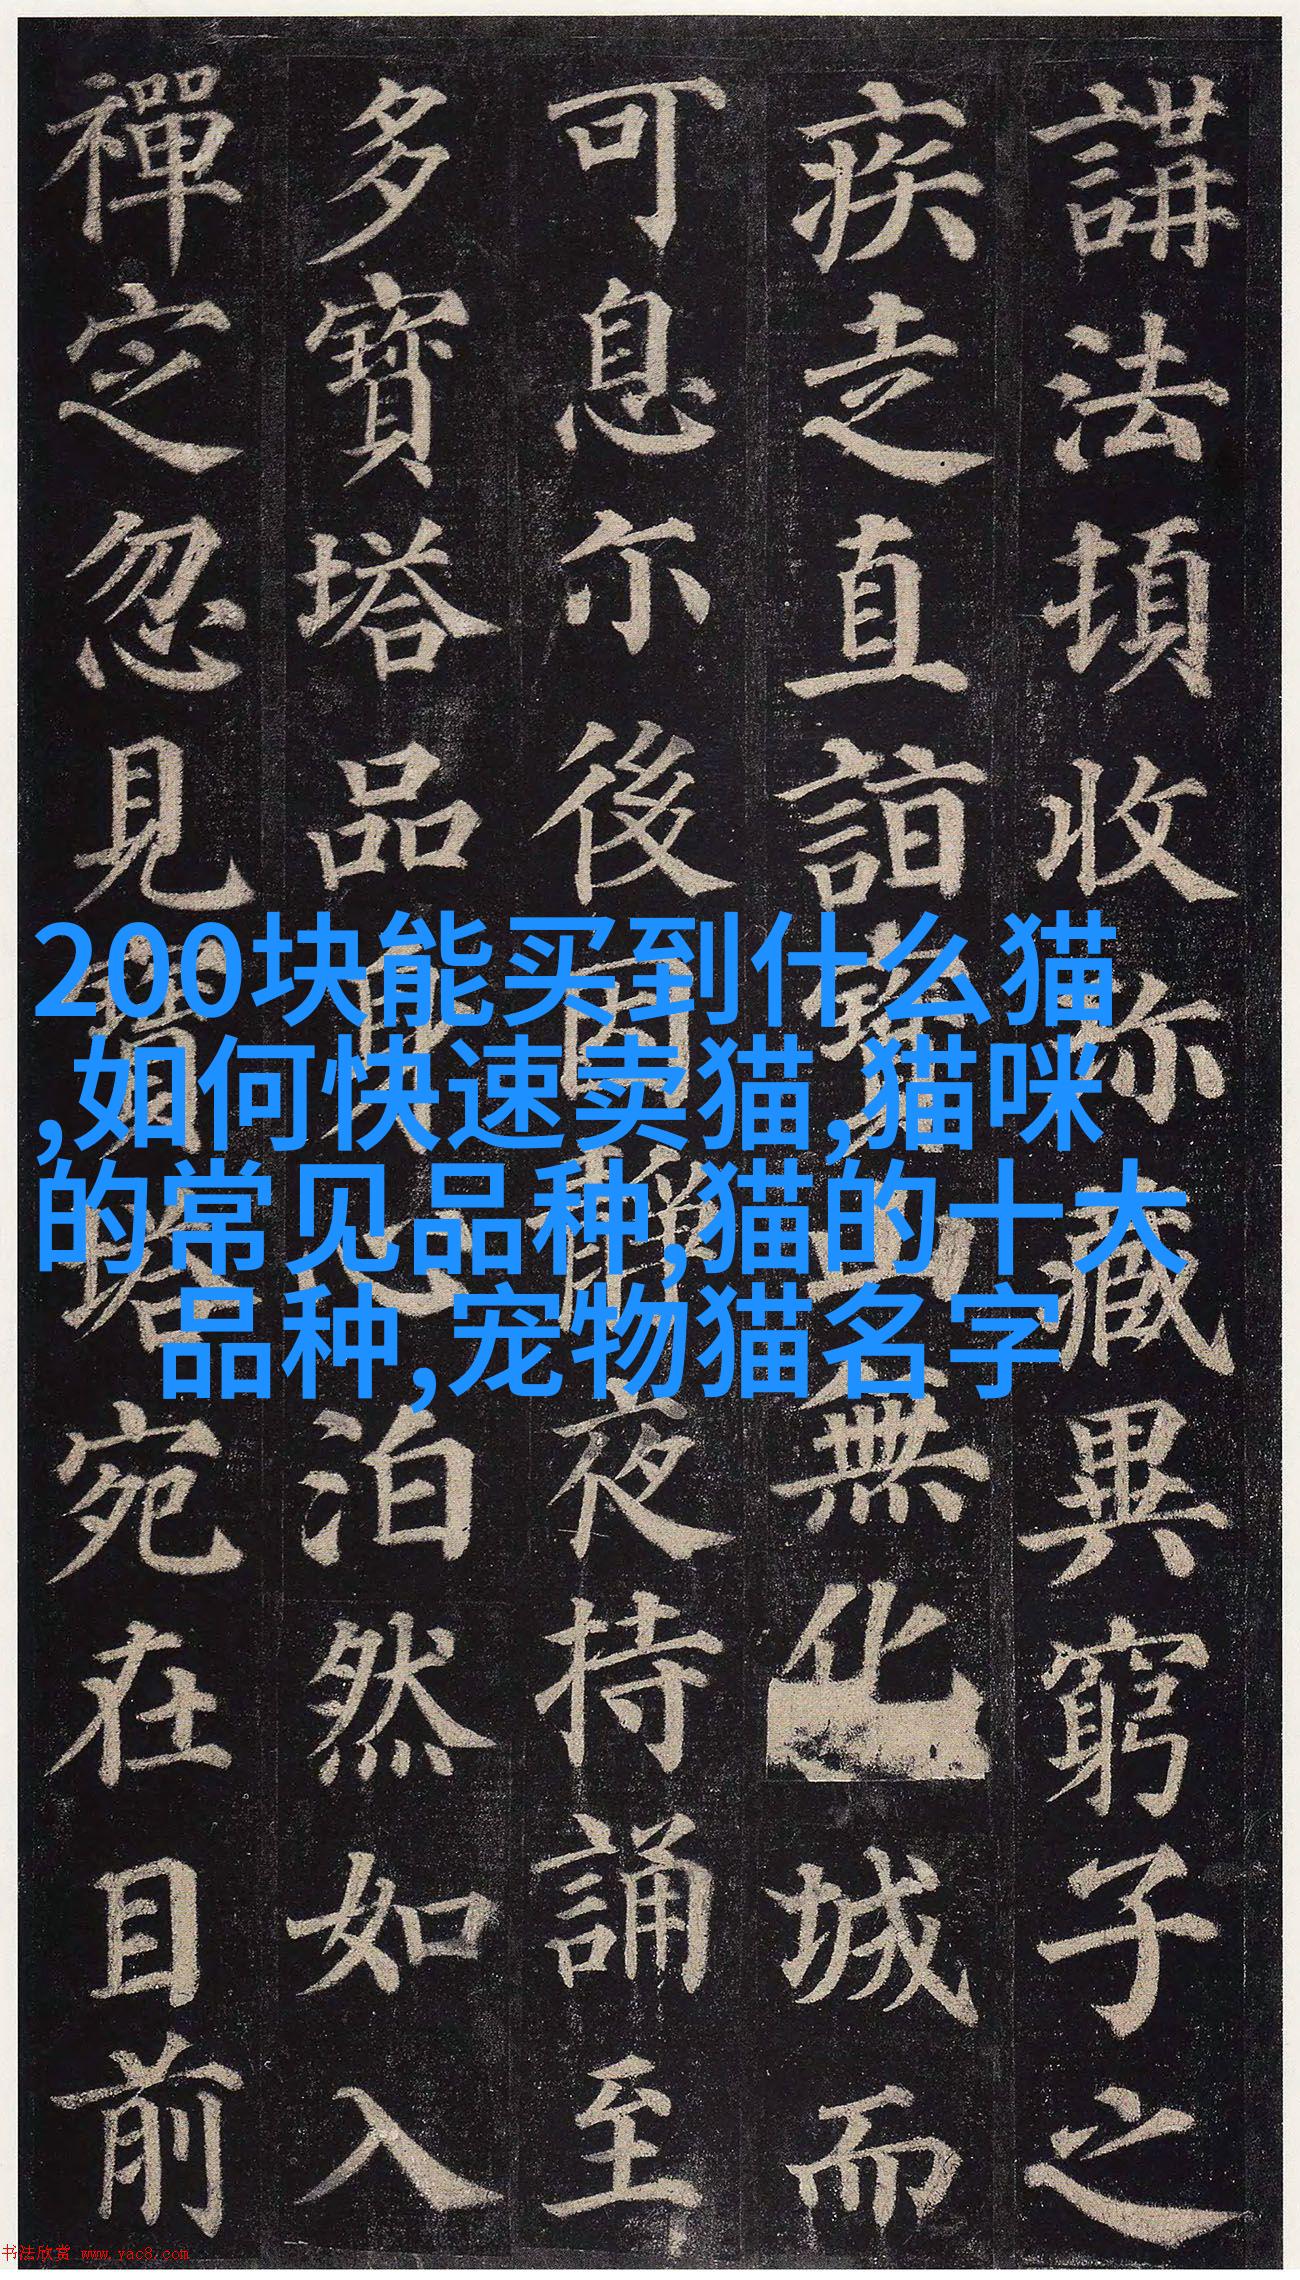 講法頓收珎藏異窮子之
疾走直詣寶山無化城而
可息尒後因靜夜持誦至
多寶塔品身心泊然如入
禪定忽見寶塔宛在目前
200块能买到什么猫
,如何快速卖猫,猫咪
的常见品种,猫的十大
品种,宠物猫名字
书法欣赏 www.yac8.com